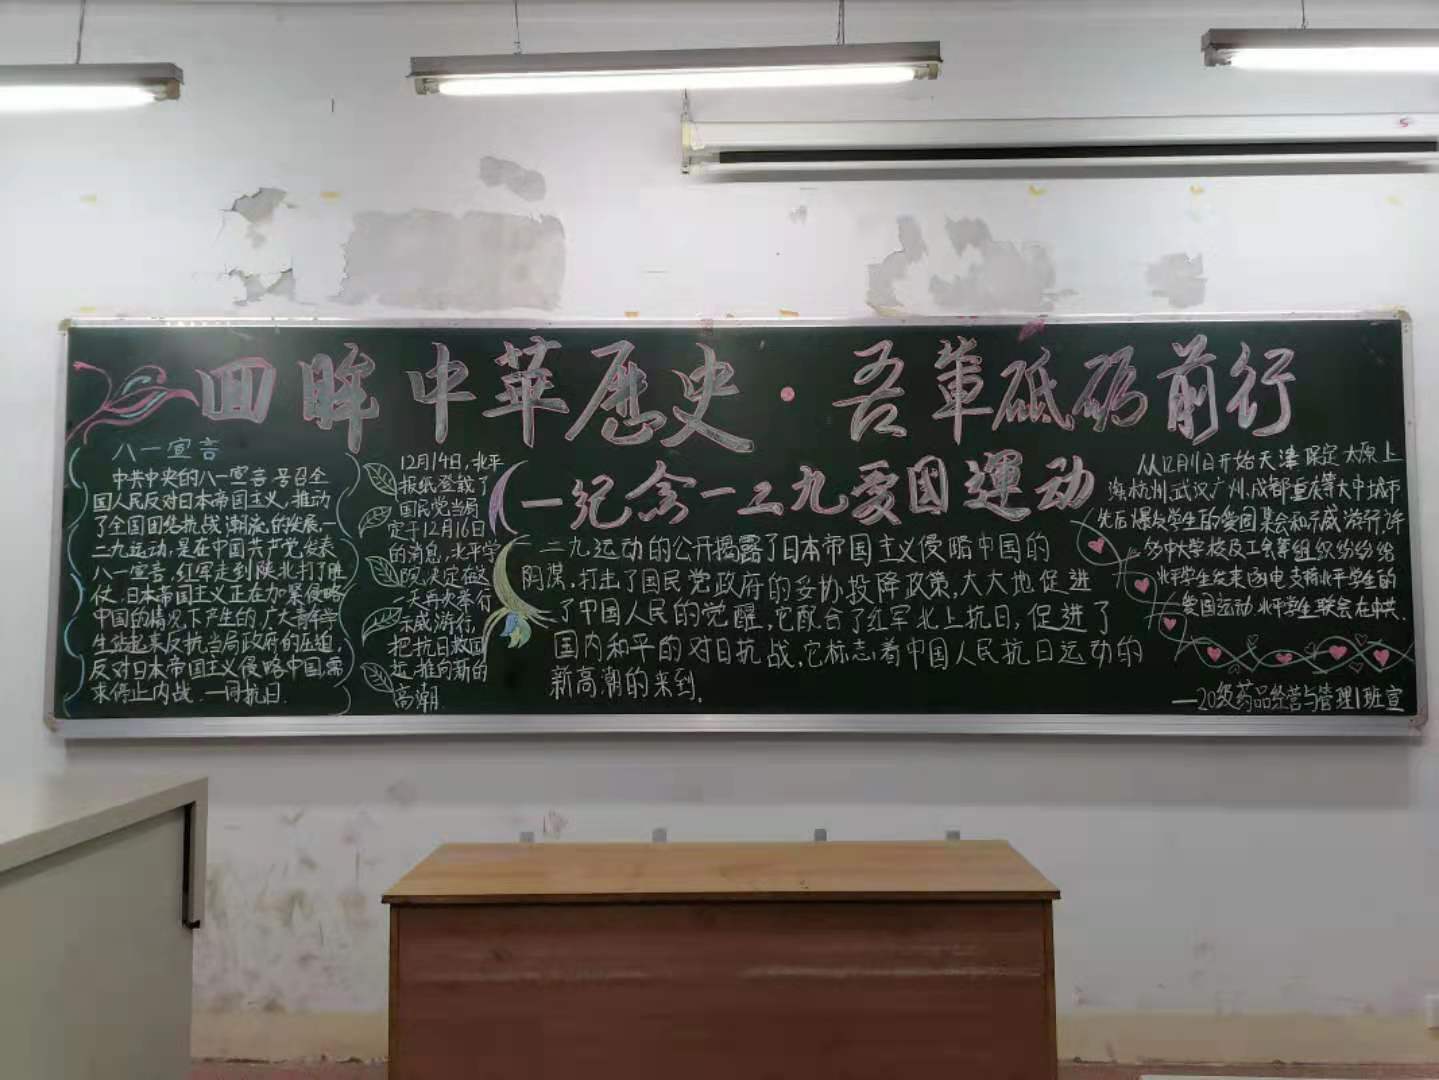 回眸中華歷史·吾輩砥砺前行
一纪念一二九爱国運动
八一宣言
中共中央的八一宣言,号召全
国人民反对日本帝国主义,推动
了全国团结抗战潮流的发展,一
二九运动,是在中国共产党发表
八一宣言,红军走到陕北打了胜
仗.日本帝国主义正在加紧侵略
中国的情况下产生的.广大青年学
生站起来反抗当局政府的压迫,
反对日本帝国主义侵略中国需
求停止内战.一同抗日.
12月14日,北平
报纸登载了
国民党当局
定于12月16日
的消息,北平学
院决定在这
一天再次举行
示威游行,
把抗日救国
运推向新的
高潮.
一二九运动的公开揭露了日本帝国主义侵略中国的
阴谋,打击了国民党政府的妥协投降政策,大大地促进
了中国人民的觉醒,它配合了红军北上抗日,促进了
国内和平的对日抗战,它标志着中国人民抗日运动的
新高潮的来到.
从12月11日开始天津保定太原上
海杭州武汉广州,成都重庆等大中城市
先后爆发学生的爱国集会和示威游行,许
多中大学校及工会等组织纷纷给
北平学生发来函电支持北平学生的
爱国运动北平学生联会在中共.
—20级药品经营与管理1班宣